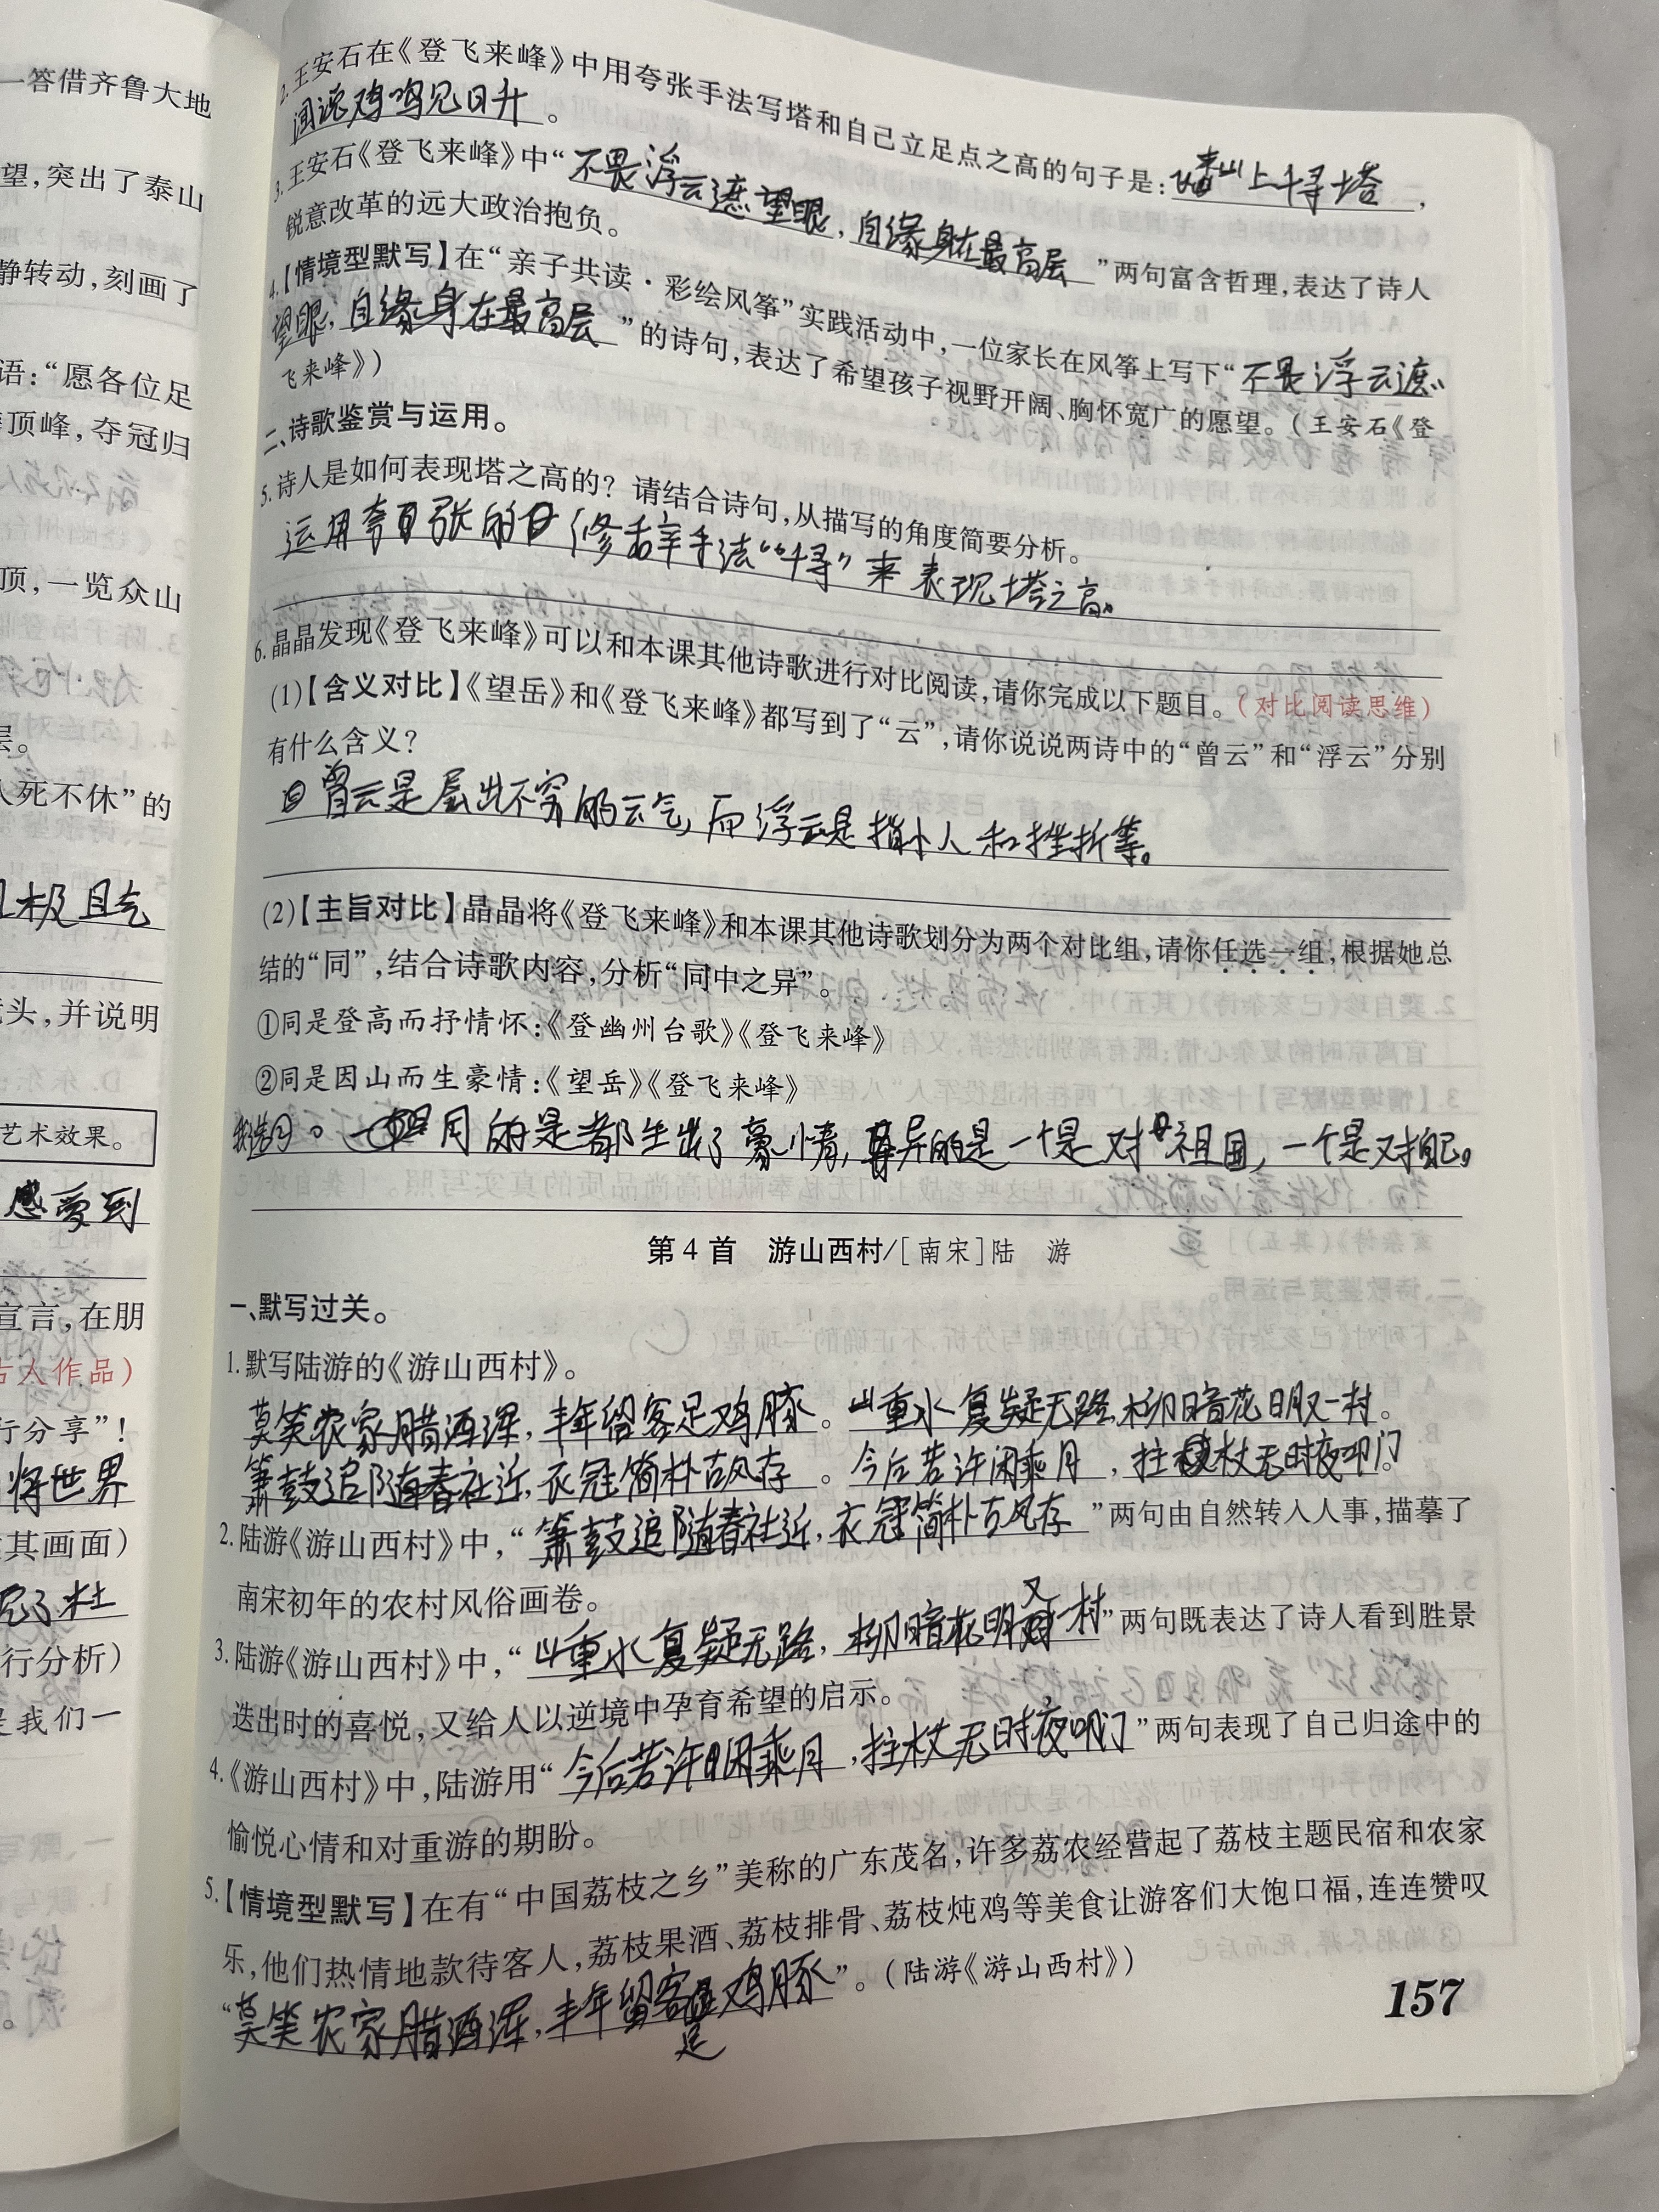 一答借齐鲁大地
望,突出了泰山
静转动,刻画了
语:“愿各位足
顶峰,夺冠归
顶,一览众山
层。
人死不休”的
且极且气
头,并说明
艺术效果。
感受到
宣言,在朋
古人作品)
行分享”!
将世界
其画面)
了杜
行分析)
是我们一
2.王安石在《登飞来峰》中用夸张手法写塔和自己立足点之高的句子是:来山上千寻塔,
闻说鸡鸣见日升。
3.王安石《登飞来峰》中“不畏浮云遮望眼,自缘身在最高层”两句富含哲理,表达了诗人
锐意改革的远大政治抱负。
4.【情境型默写】在“亲子共读·彩绘风筝”实践活动中,一位家长在风筝上写下“不畏浮云遮
望眼,自缘身在最高层”的诗句,表达了希望孩子视野开阔、胸怀宽广的愿望。(王安石《登
飞来峰》)
二、诗歌鉴赏与运用。
5.诗人是如何表现塔之高的?请结合诗句,从描写的角度简要分析。
运用夸张的修辞手法“千寻”来表现塔之高。
6.晶晶发现《登飞来峰》可以和本课其他诗歌进行对比阅读,请你完成以下题目。(对比阅读思维)
(1)【含义对比】《望岳》和《登飞来峰》都写到了“云”,请你说说两诗中的“曾云”和“浮云”分别
有什么含义?
曾云是层出不穷的云气,而浮云是指小人和挫折等。
(2)【主旨对比】晶晶将《登飞来峰》和本课其他诗歌划分为两个对比组,请你任选一组,根据她总
结的“同”,结合诗歌内容,分析“同中之异”。
①同是登高而抒情怀:《登幽州台歌》《登飞来峰》
②同是因山而生豪情:《望岳》《登飞来峰》
我选②。同的是都生出了豪情,异的是一个是对祖国,一个是对自己。
第4首 游山西村/[南宋]陆 游
一、默写过关。
1.默写陆游的《游山西村》。
莫笑农家腊酒浑,丰年留客足鸡豚。山重水复疑无路,柳暗花明又一村。
箫鼓追随春社近,衣冠简朴古风存。今后若许闲乘月,拄杖无时夜叩门。
2.陆游《游山西村》中,“箫鼓追随春社近,衣冠简朴古风存”两句由自然转入人事,描摹了
南宋初年的农村风俗画卷。
3.陆游《游山西村》中,“山重水复疑无路,柳暗花明又一村”两句既表达了诗人看到胜景
迭出时的喜悦,又给人以逆境中孕育希望的启示。
4.《游山西村》中,陆游用“今后若许闲乘月,拄杖无时夜叩门”两句表现了自己归途中的
愉悦心情和对重游的期盼。
5.【情境型默写】在有“中国荔枝之乡”美称的广东茂名,许多荔农经营起了荔枝主题民宿和农家
乐,他们热情地款待客人,荔枝果酒、荔枝排骨、荔枝炖鸡等美食让游客们大饱口福,连连赞叹
“莫笑农家腊酒浑,丰年留客足鸡豚”。(陆游《游山西村》)
157